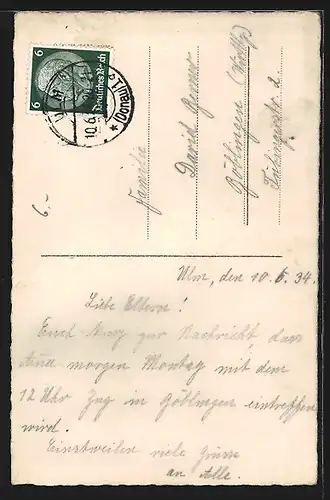 6
6
Deutsches Reich
10.6.
(Donau)
6.-
Familie
David
Böblingen (Wttbg)
Ulm, den 10. 6. 34.
Liebe Eltern!
Euch kurz zur Nachricht, das
morgen Montag mit dem
12 Uhr Zug in Böblingen eintreffen
wird.
Einstweilen viele Grüsse
an Alle.